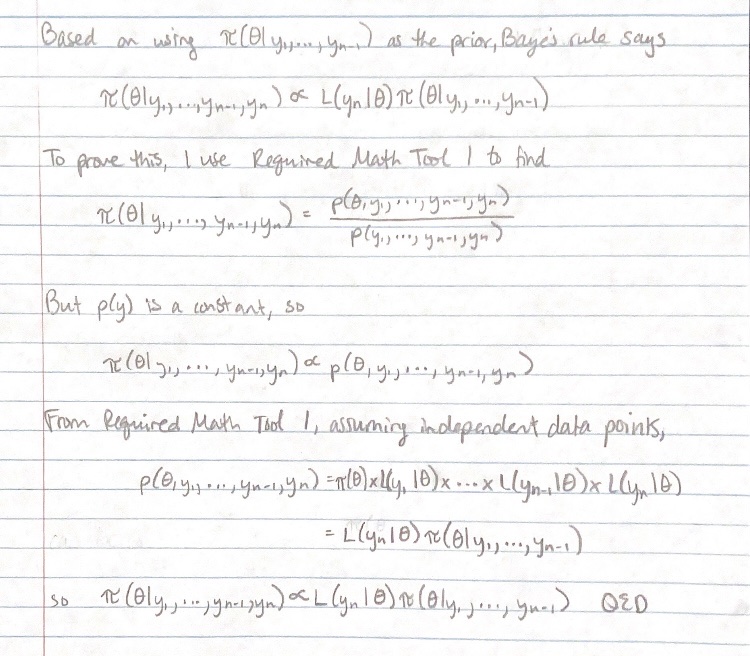 Based on using π(θ|y₁,...,yₙ₋₁) as the prior, Baye's rule says
π(θ|y₁,...,yₙ₋₁,yₙ) ∝ L(yₙ|θ)π(θ|y₁,...,yₙ₋₁)
To prove this, I use Required Math Tool 1 to find
π(θ|y₁,...,yₙ₋₁,yₙ) = p(θ,y₁,...,yₙ₋₁,yₙ) / p(y₁,...,yₙ₋₁,yₙ)
But p(y) is a constant, so
π(θ|y₁,...,yₙ₋₁,yₙ) ∝ p(θ,y₁,...,yₙ₋₁,yₙ)
From Required Math Tool 1, assuming independent data points,
p(θ,y₁,...,yₙ₋₁,yₙ) = π(θ)×L(y₁|θ)×...×L(yₙ₋₁|θ)×L(yₙ|θ)
= L(yₙ|θ)π(θ|y₁,...,yₙ₋₁)
so π(θ|y₁,...,yₙ₋₁,yₙ) ∝ L(yₙ|θ)π(θ|y₁,...,yₙ₋₁) QED